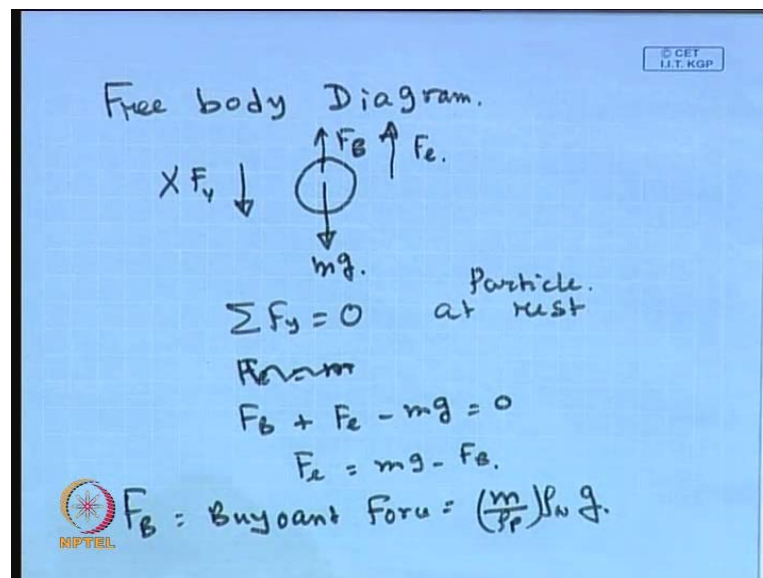 © CET
I.I.T. KGP
Free body Diagram.
F_B F_e.
X F_v
mg.
Particle.
ΣF_y = 0 at rest
F_B + F_e - mg = 0
F_e = mg - F_B.
F_B = Buyoant Force = (m/ρ_p) ρ_w g.
NPTEL